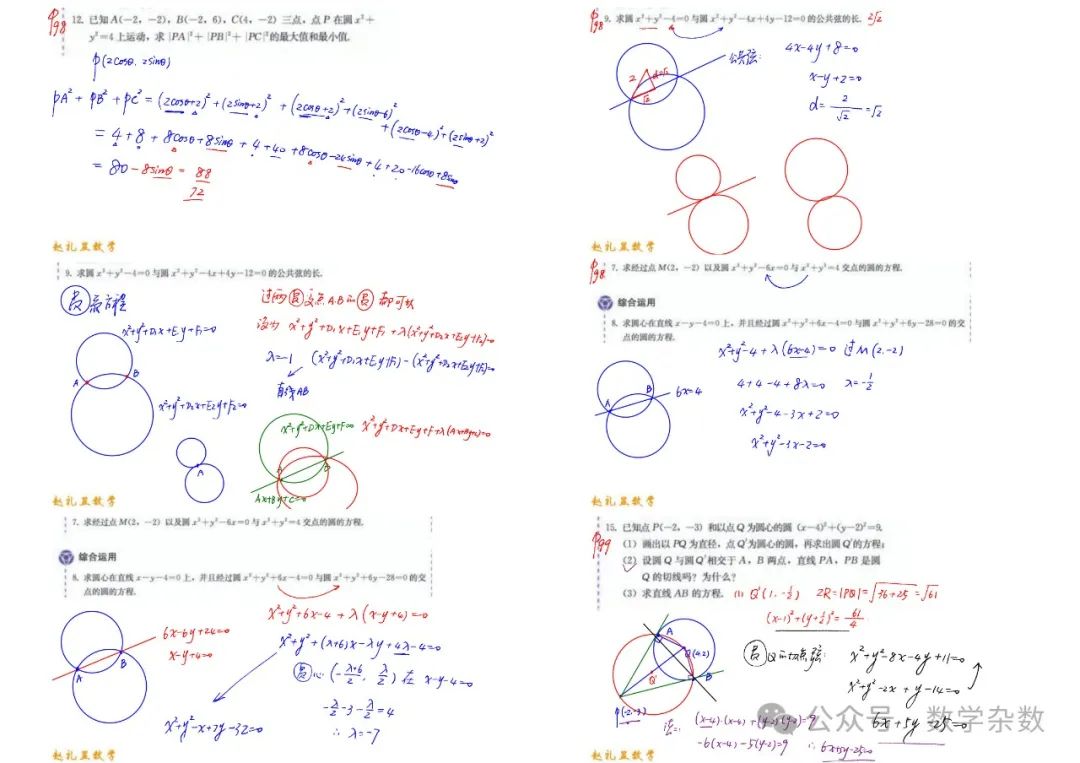 P98
12. 已知 A(−2, −2), B(−2, 6), C(4, −2) 三点, 点 P 在圆 x²+
y²=4 上运动, 求 |PA|²+|PB|²+|PC|² 的最大值和最小值.
P(2cosθ, 2sinθ)
PA²+PB²+PC² = (2cosθ+2)²+(2sinθ+2)² + (2cosθ+2)²+(2sinθ−6)²
+(2cosθ−4)²+(2sinθ+2)²
= 4+8+8cosθ+8sinθ+4+40+8cosθ−24sinθ+4+20−16cosθ+8sinθ
= 80−8sinθ = 88
72
赵礼显数学
9. 求圆 x²+y²−4=0 与圆 x²+y²−4x+4y−12=0 的公共弦的长.
圆系方程
过两圆交点A.B的圆都可以
x²+y²+D₁x+E₁y+F₁=0
设为 x²+y²+D₁x+E₁y+F₁+λ(x²+y²+D₂x+E₂y+F₂)=0
λ=−1 (x²+y²+D₁x+E₁y+F₁)−(x²+y²+D₂x+E₂y+F₂)=0
A B
直线AB
x²+y²+D₂x+E₂y+F₂=0
x²+y²+Dx+Ey+F=0 x²+y²+Dx+Ey+F+λ(Ax+By+c)=0
A
A B
Ax+By+C=0
赵礼显数学
7. 求经过点 M(2, −2) 以及圆 x²+y²−6x=0 与 x²+y²=4 交点的圆的方程.
综合运用
8. 求圆心在直线 x−y−4=0 上, 并且经过圆 x²+y²+6x−4=0 与圆 x²+y²+6y−28=0 的交
点的圆的方程.
x²+y²+6x−4+λ(x−y+4)=0
6x−6y+24=0
x−y+4=0
x²+y²+(λ+6)x−λy+4λ−4=0
A B
圆心(−λ+6/2, λ/2) 在 x−y−4=0
−λ/2−3−λ/2=4
∴ λ=−7
x²+y²−x+7y−32=0
赵礼显数学
P98
9. 求圆 x²+y²−4=0 与圆 x²+y²−4x+4y−12=0 的公共弦的长. 2√2
公共弦: 4x−4y+8=0
x−y+2=0
d=2/√2=√2
2 d=√2
√2
赵礼显数学
P98
7. 求经过点 M(2, −2) 以及圆 x²+y²−6x=0 与 x²+y²=4 交点的圆的方程.
综合运用
8. 求圆心在直线 x−y−4=0 上, 并且经过圆 x²+y²+6x−4=0 与圆 x²+y²+6y−28=0 的交
点的圆的方程.
x²+y²−4+λ(6x−4)=0 过M(2.−2)
A B 6x=4
4+4−4+8λ=0 λ=−1/2
x²+y²−4−3x+2=0
x²+y²−3x−2=0
赵礼显数学
P99
15. 已知点 P(−2, −3) 和以点 Q 为圆心的圆 (x−4)²+(y−2)²=9.
(1) 画出以 PQ 为直径, 点 Q′为圆心的圆, 再求出圆 Q′的方程;
(2) 设圆 Q 与圆 Q′相交于 A, B 两点, 直线 PA, PB 是圆
Q 的切线吗? 为什么?
(3) 求直线 AB 的方程.
(1) Q′(1, −1/2) 2R=|PQ|=√36+25=√61
(x−1)²+(y+1/2)²=61/4
A
Q(4.2)
Q′
B
P(−2.−3)
圆Q的切点弦: x²+y²−8x−4y+11=0
x²+y²−2x+y−14=0
6x+5y−25=0
(x−4)·(x−4)+(y−2)(y−2)=9
−6(x−4)−5(y−2)=9 ∴ 6x+5y−25=0
公众号·数学杂数
赵礼显数学